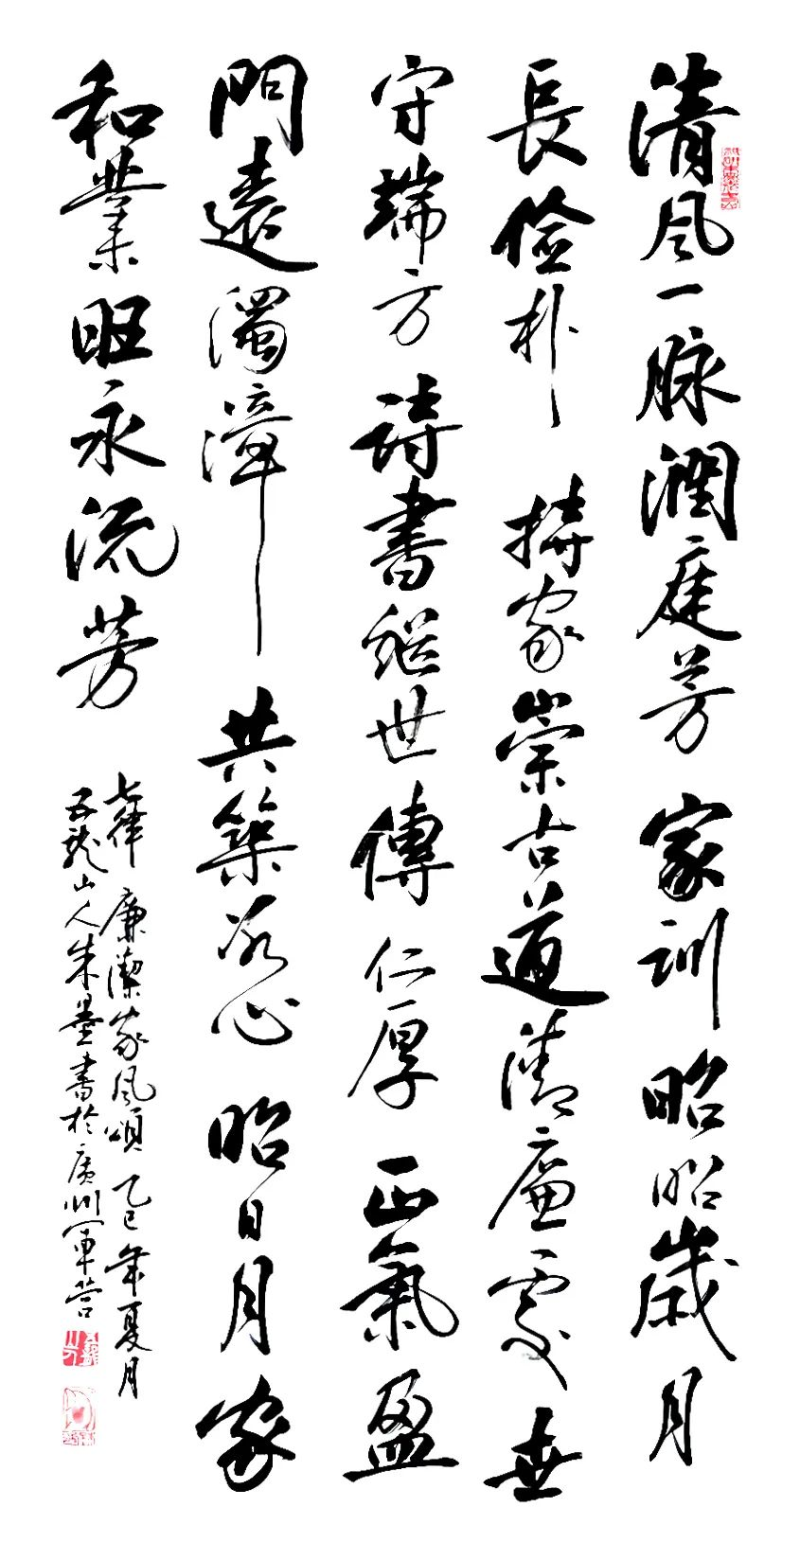 清風一脉潤庭芳家訓昭昭歲月
長儉朴持家崇古道清廉處世
守端方詩書繼世傳仁厚正氣盈
門遠濁漳共築冰心昭日月家
和業旺永流芳
七律廉潔家風頌乙巳年夏月
五龍山人朱墨書於廣州軍營